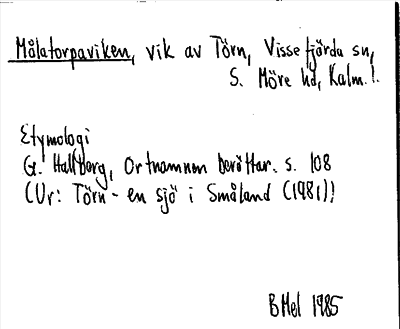 Målatorpaviken, vik av Törn, Vissefjärda sn,
S. Möre hd, Kalm. l.
Etymologi
G. Hallberg, Ortnamnen berättar. s. 108
(Ur: Törn - en sjö i Småland (1981))
BMel 1985